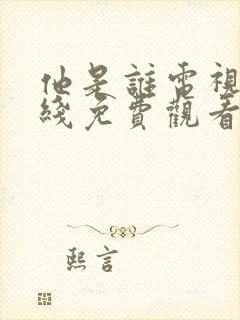 他是誰電視
綫免費觀看
熙言